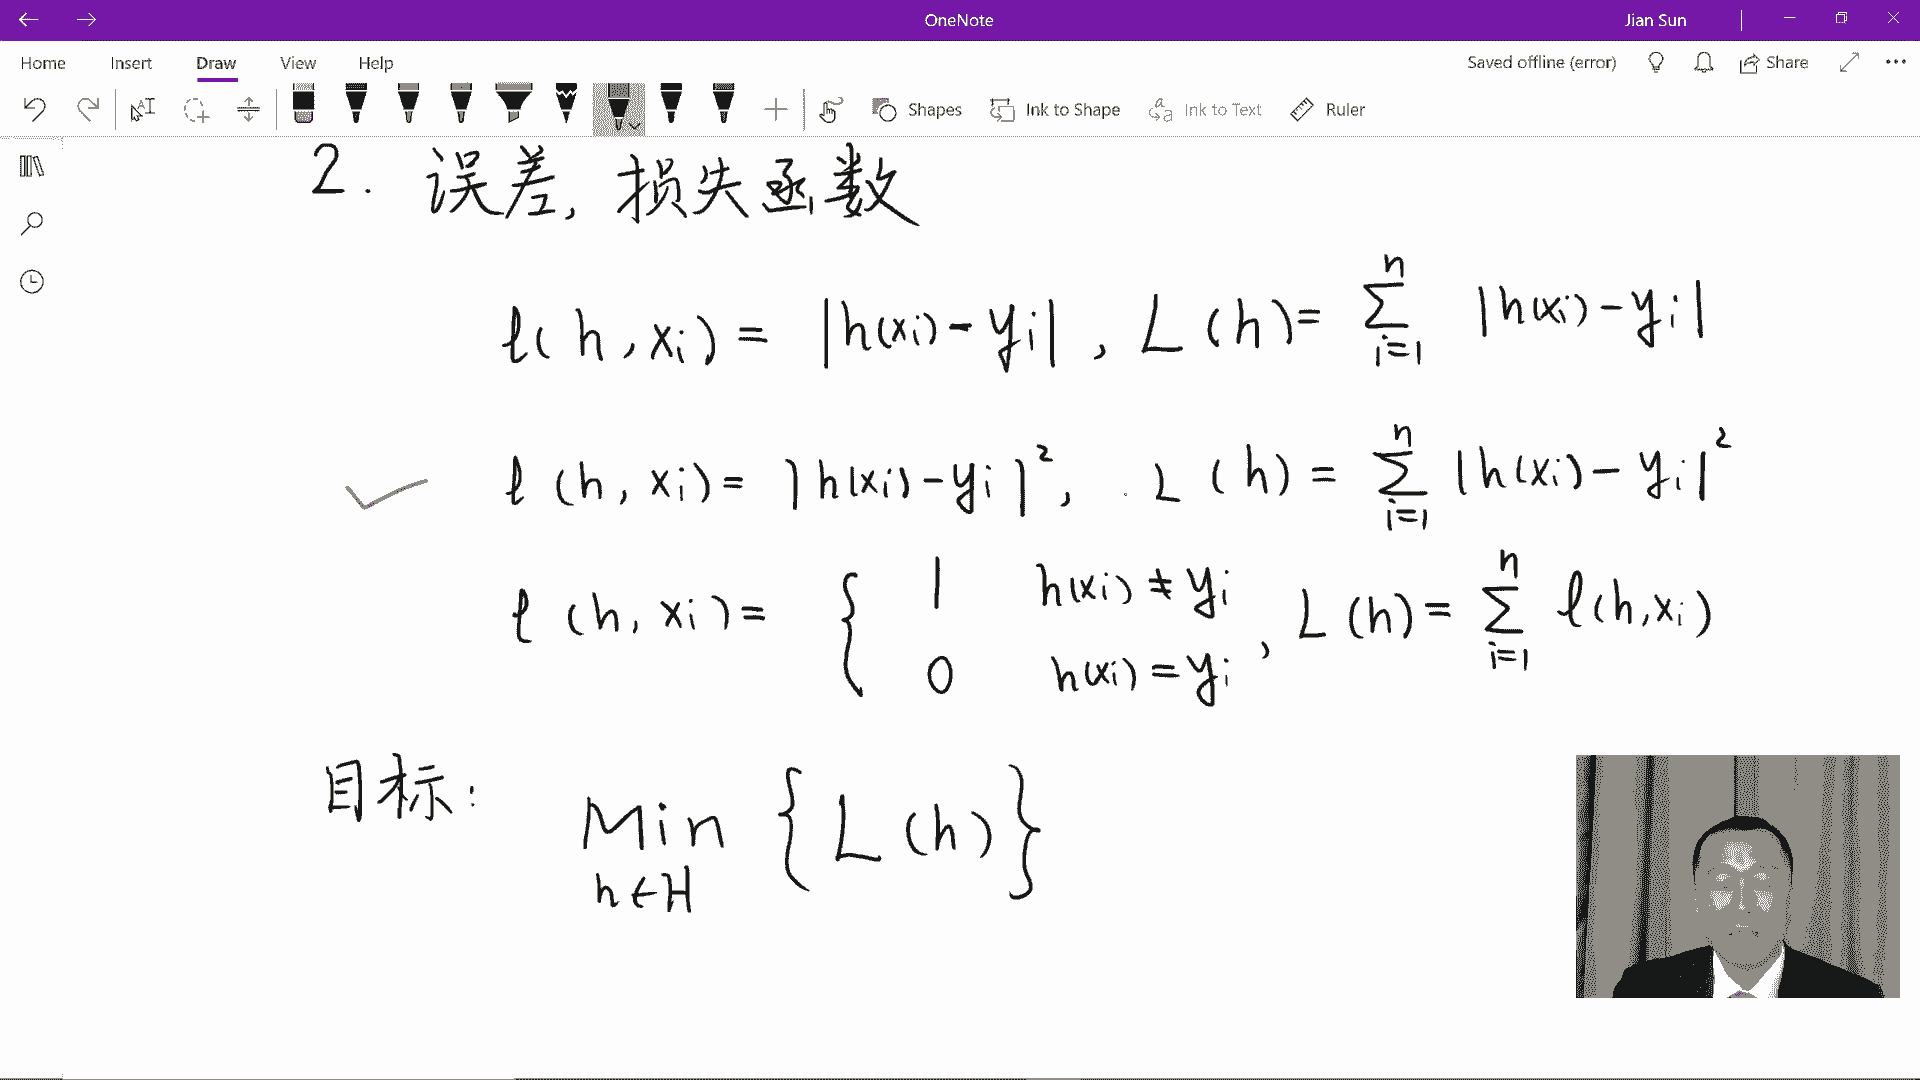 OneNote
Jian Sun
Home Insert Draw View Help
Saved offline (error) Share
Shapes Ink to Shape Ink to Text Ruler
2. 误差, 损失函数
ℓ(h, xi) = |h(xi) - yi| , L(h) = ∑ i=1 n |h(xi) - yi|
ℓ(h, xi) = |h(xi) - yi|², L(h) = ∑ i=1 n |h(xi) - yi|²
ℓ(h, xi) = { 1 h(xi) ≠ yi
0 h(xi) = yi , L(h) = ∑ i=1 n ℓ(h, xi)
目标: Min {L(h)}
h∈H